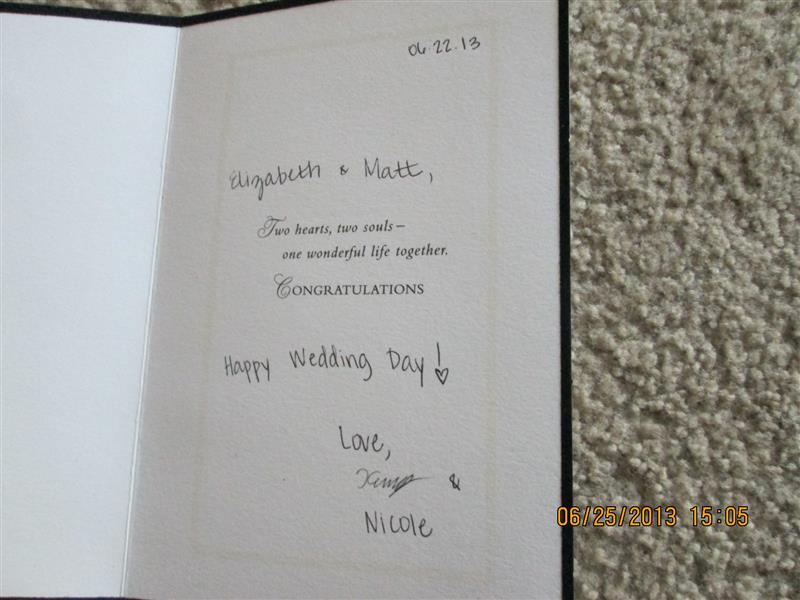 06.22.13
Elizabeth & Matt,
Two hearts, two souls—
one wonderful life together.
CONGRATULATIONS
Happy Wedding Day!
Love,
&
Nicole
06/25/2013 15:05